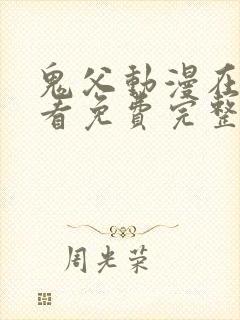 鬼父動漫在
看免費完整
周光荣